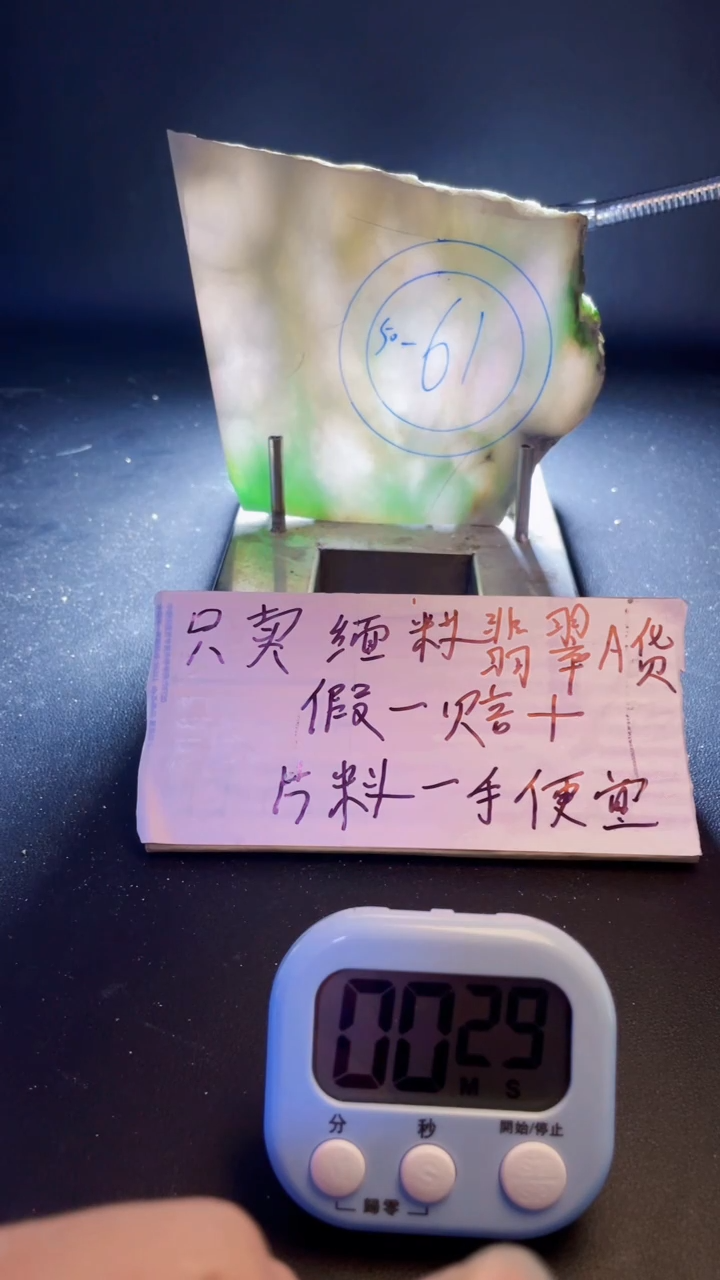 50-61
只卖缅料翡翠A货
假一赔十
片料一手便宜
00 29
M S
分 秒 開始/停止
歸零